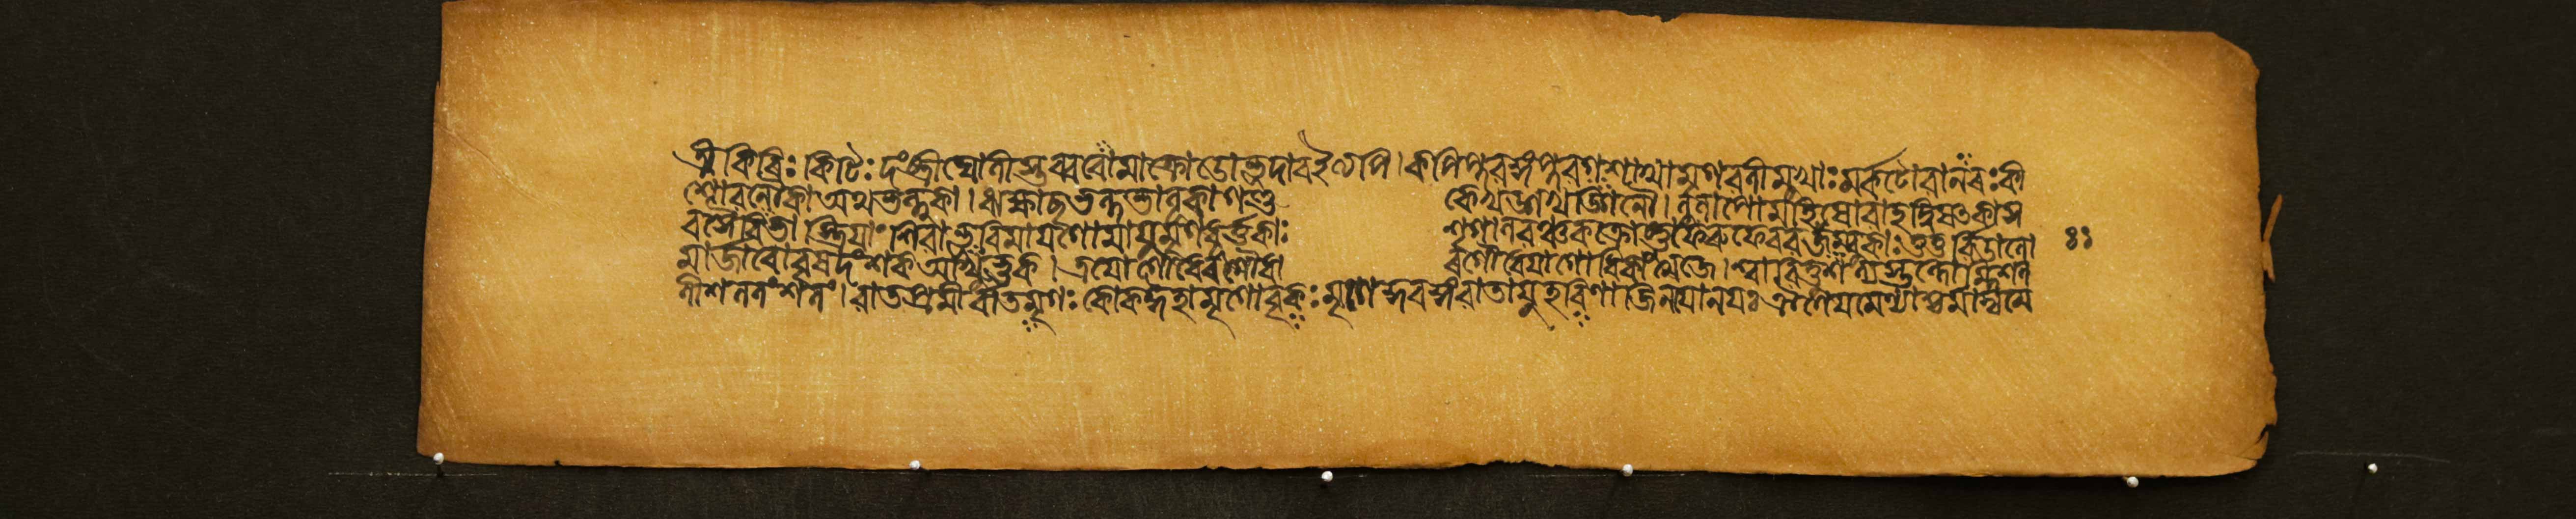 ৰ কিৰিঃ কিটিঃ দংষ্ট্ৰী ঘোণী স্তব্ধৰোমা ক্ৰোডো ভূদাৰ ইত্যপি। কপিপ্লবঙ্গপ্লবগশাখামৃগবলীমুখাঃ মৰ্কটো বানৰঃ কী
শো বনৌকা অথ ভল্লুকে। ঋক্ষাচ্ছভল্লভল্লূকা গণ্ড কে খড্গখড্গিনৌ। লুলাপো মহিষো বাহদ্বিষৎকাস
ৰসৈৰিভাঃ স্ত্ৰিযাং শিবা ভূৰিমাযগোমাযুমৃগধূৰ্ত্তকাঃ শৃগালবঞ্চকক্ৰোষ্টুফেৰুফেৰবজম্বুকাঃ ওতুৰ্বিডালো ৪১
মাৰ্জাৰো বৃষদংশক আখুভুক্। ত্ৰযো গৌধেৰগৌধা ৰগৌধেযা গোধিকাত্মজে। শ্বাবিত্তু শল্যস্তল্লোম্নি শল
লী শললং শলং। বাতপ্ৰমীৰ্বাতমৃগঃ কোকস্ত্বীহামৃগো বৃকঃ মৃগে কুৰঙ্গবাতাযুহৰিণাজিনযোনযঃ ঐণেযমেণ্যাশ্চৰ্মাদ্যমে